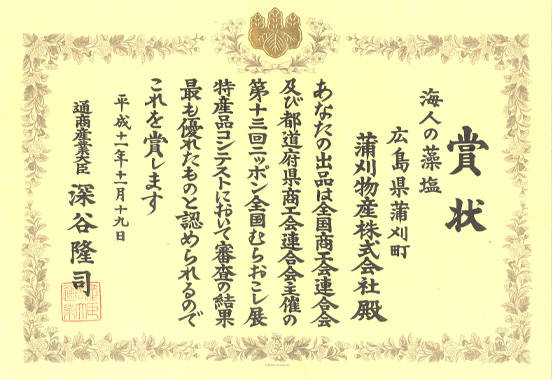 賞状
海人の藻塩
広島県蒲刈町
蒲刈物産株式会社殿
あなたの出品は全国商工会連合会
及び都道府県商工会連合会主催の
第十三回ニッポン全国むらおこし展
特産品コンテストにおいて審査の結果
最も優れたものと認められるので
これを賞します
平成十二年十一月十九日
通商産業大臣 深谷隆司